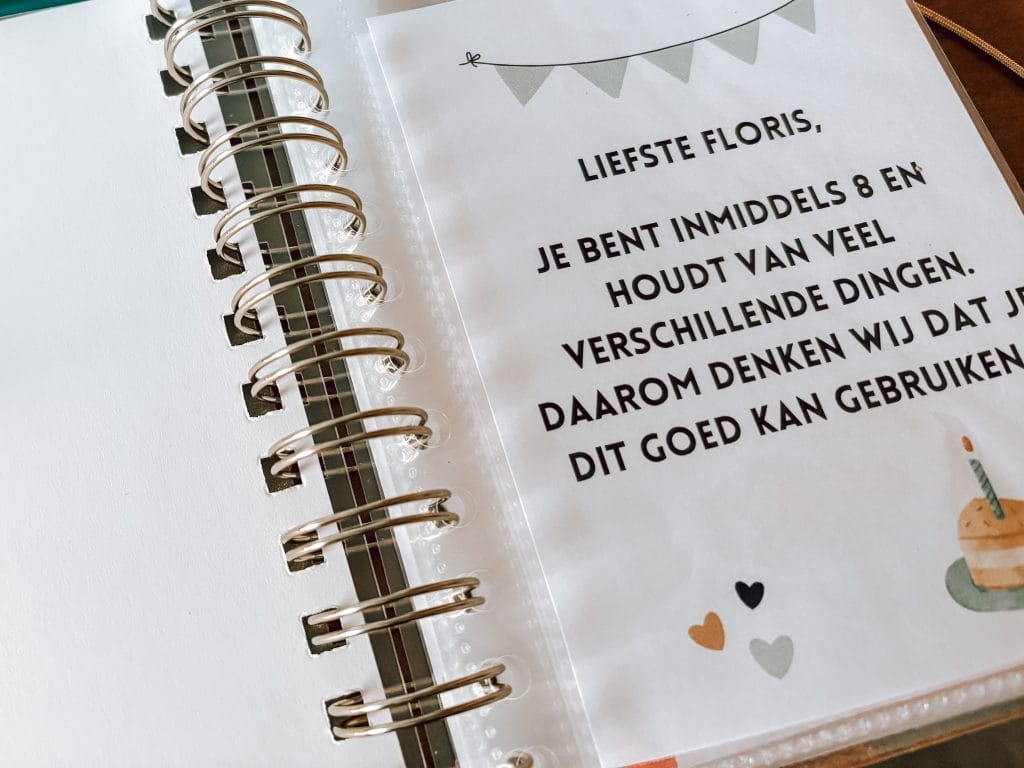 LIEFSTE FLORIS,
JE BENT INMIDDELS 8 EN
HOUDT VAN VEEL
VERSCHILLENDE DINGEN.
DAAROM DENKEN WIJ DAT JE
DIT GOED KAN GEBRUIKEN